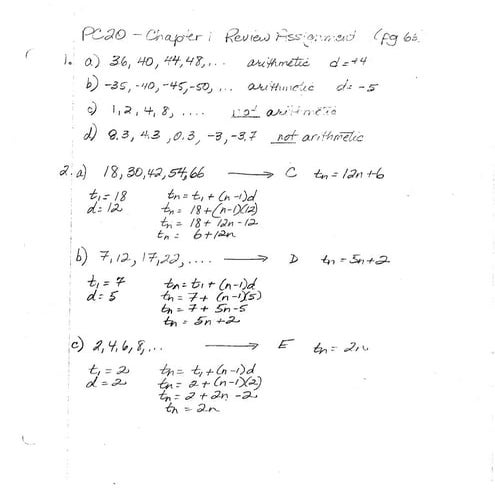 PC20 - Chapter 1 Review Assignment (pg 66)
1. a) 36, 40, 44, 48, ... arithmetic d = +4
b) -35, -40, -45, -50, ... arithmetic d = -5
c) 1, 2, 4, 8, .... not arithmetic
d) 8.3, 4.3, 0.3, -3, -3.7 not arithmetic
2. a) 18, 30, 42, 54, 66 → C tn = 12n+6
t1 = 18 tn = t1 + (n-1)d
d = 12 tn = 18 + (n-1)(12)
tn = 18 + 12n - 12
tn = 6 + 12n
b) 7, 12, 17, 22, .... → D tn = 5n+2
t1 = 7 tn = t1 + (n-1)d
d = 5 tn = 7 + (n-1)(5)
tn = 7 + 5n - 5
tn = 5n + 2
c) 2, 4, 6, 8, ... → E tn = 2n
t1 = 2 tn = t1 + (n-1)d
d = 2 tn = 2 + (n-1)(2)
tn = 2 + 2n - 2
tn = 2n